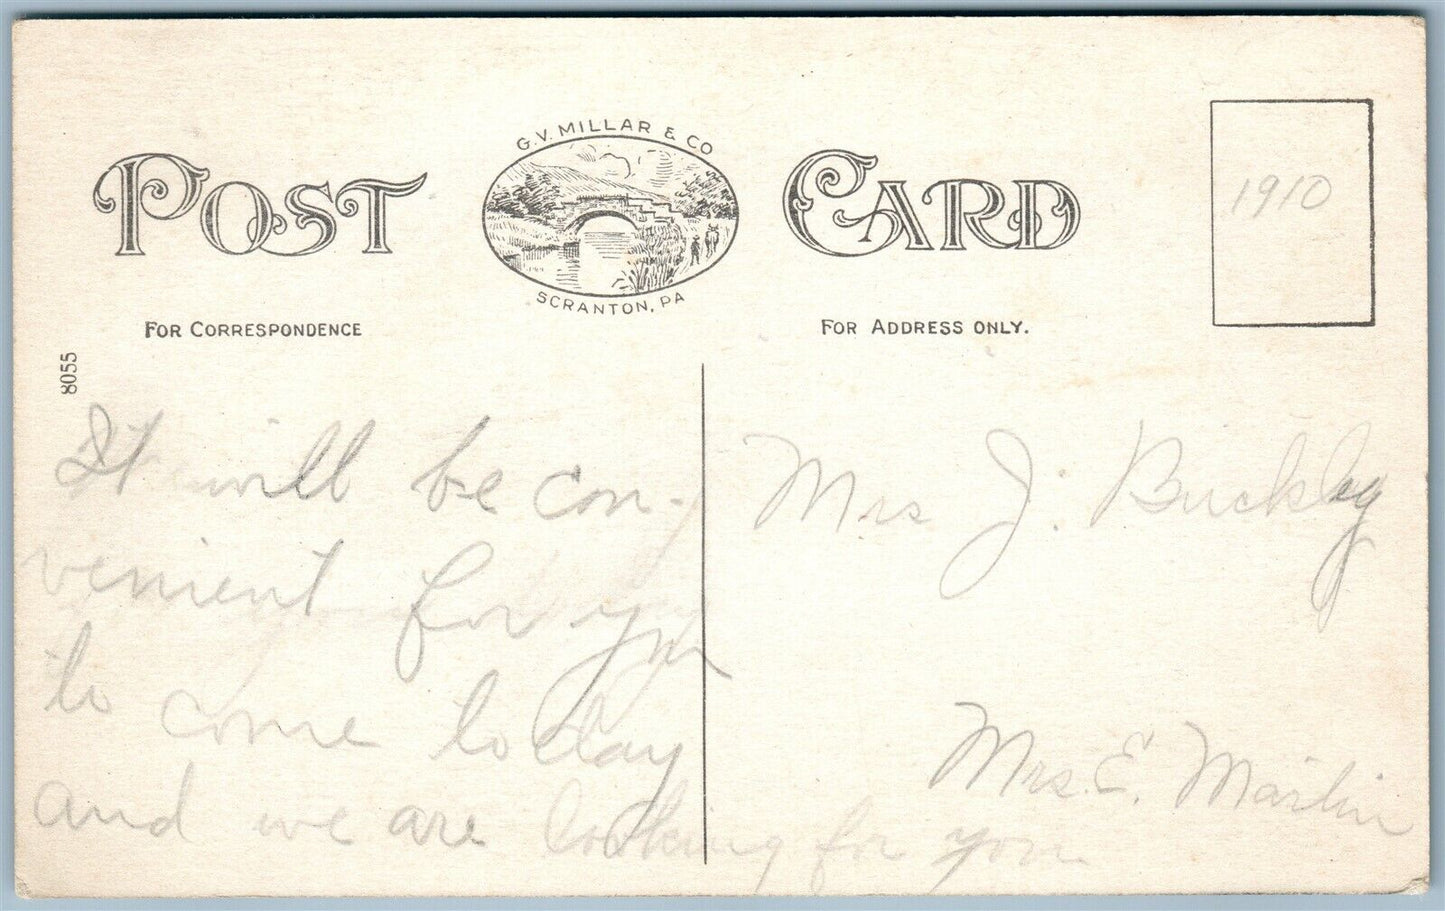 G.V. MILLAR & CO
POST CARD
SCRANTON, PA
1910
FOR CORRESPONDENCE
FOR ADDRESS ONLY.
8055
It will be con-
venient for you
to come today
and we are looking for you
Mrs J. Buckley
Mrs. E. Martin